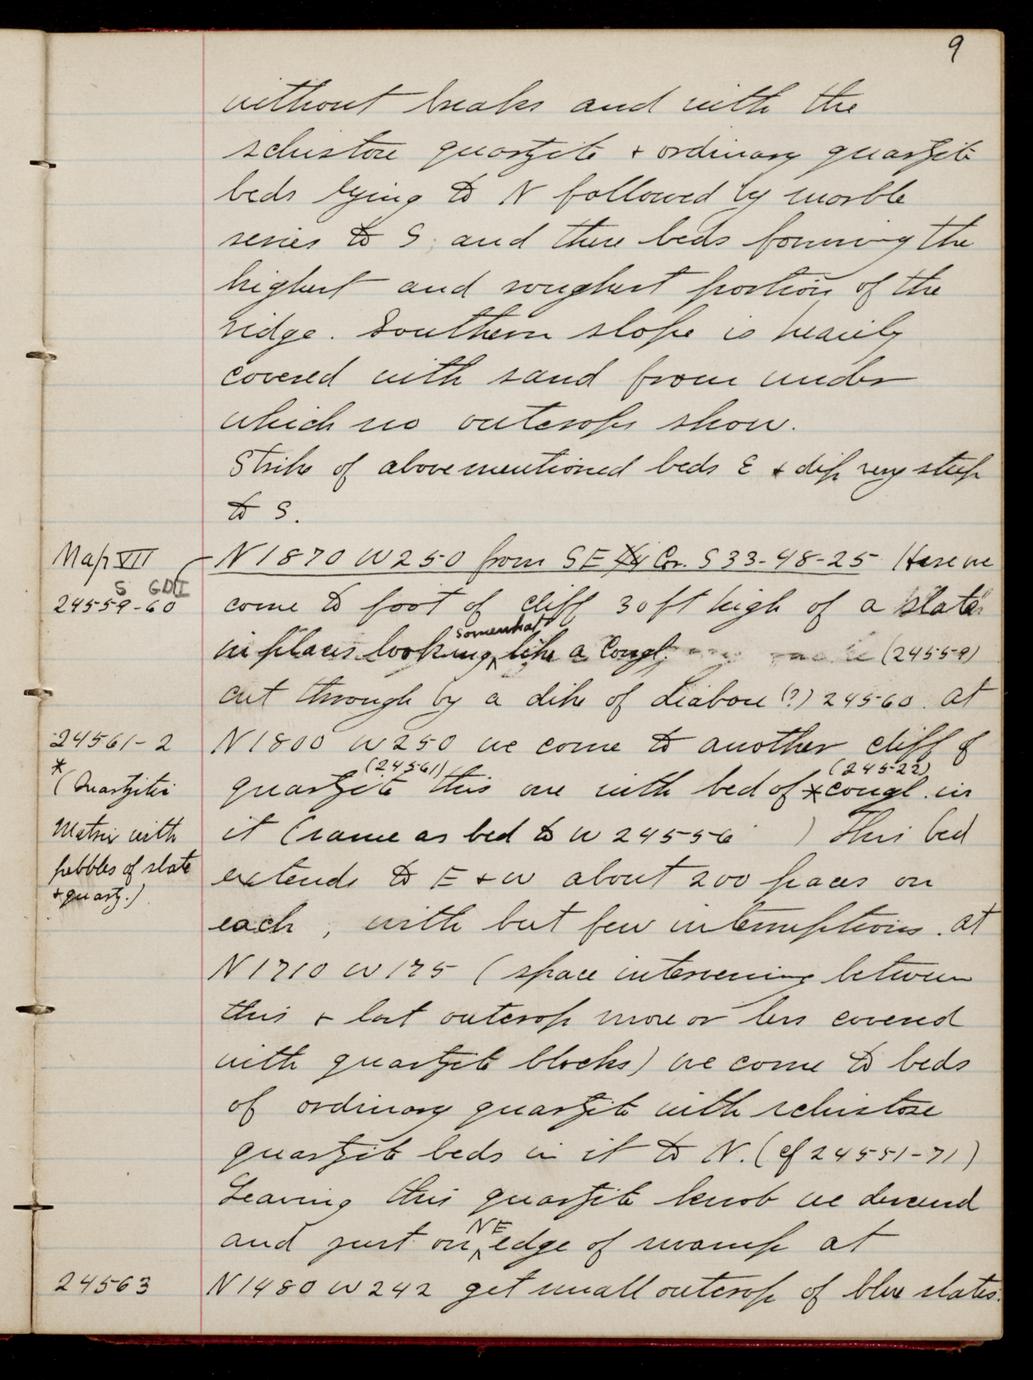 9
without breaks and with the
schistose quartzite + ordinary quartzite
beds lying to N followed by marble
series to S. and these beds forming the
highest and roughest portion of the
ridge. Southern slope is heavily
covered with sand from under
which no outcrops show.
Strike of above mentioned beds E + dip very steep
to S.
Map VII
N1870 W250 from SE Cor. S33-48-25 Here we
S GDI
24559-60
come to foot of cliff 30 ft high of a "slate"
in places looking somewhat like a Congl. (24559)
cut through by a dike of diabase (?) 24560. at
24561-2
N1800 W250 we come to another cliff of
quartzite (24561) this one with bed of *congl. in
*
(Quartzitic
Matrix with
pebbles of slate
+ quartz.)
it (same as bed to W 24556 ) This bed
extends to E + W about 200 paces on
each, with but few interruptions. at
N1710 W175 (space intervening between
this + last outcrop more or less covered
with quartzite blocks) we come to beds
of ordinary quartzite with schistose
quartzite beds in it to N. (cf 24551-71)
Leaving this quartzite knob we descend
and just on NE edge of swamp at
24563
N1480 W242 get small outcrop of blue slates.